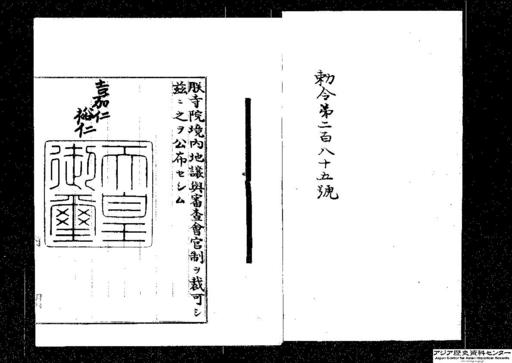 勅令第二百八十五號
朕寺院境内地讓與審査會官制ヲ裁可シ
茲ニ之ヲ公布セシム
嘉仁
裕仁
天皇
御璽
アジア歴史資料センター
Japan Center for Asian Historical Records